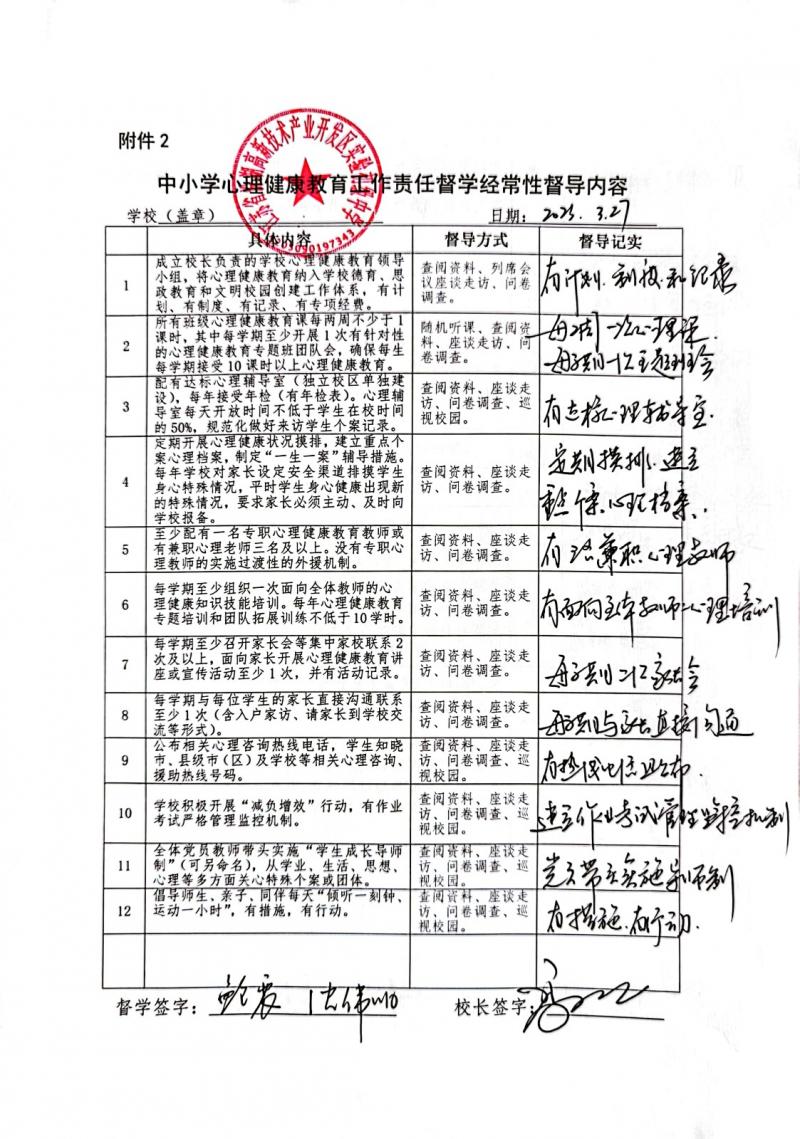 附件2
高新技术产业开发区实验初级中学
中小学心理健康教育工作责任督学经常性督导内容
学校（盖章）
日期：2023.3.27
具体内容
督导方式
督导记实
1
成立校长负责的学校心理健康教育领导
小组，将心理健康教育纳入学校德育、思
政教育和文明校园创建工作体系，有计
划、有制度、有记录、有专项经费。
查阅资料、列席会
议座谈走访、问卷
调查。
有计划、制度和纪录
2
所有班级心理健康教育课每两周不少于1
课时，其中每学期至少开展1次有针对性
的心理健康教育专题班团队会，确保每生
每学期接受10课时以上心理健康教育。
随机听课、查阅资
料、座谈走访、问
卷调查。
每周一次心理课
每学期一次主题班会
3
配有达标心理辅导室（独立校区单独建
设），每年接受年检（有年检表）。心理辅
导室每天开放时间不低于学生在校时间
的50%，规范化做好来访学生个案记录。
查阅资料、座谈走
访、问卷调查、巡
视校园。
有达标心理辅导室
4
定期开展心理健康状况摸排，建立重点个
案心理档案，制定“一生一案”辅导措施。
每年学校对家长设定安全渠道排摸学生
身心特殊情况，平时学生身心健康出现新
的特殊情况，要求家长必须主动、及时向
学校报备。
查阅资料、座谈走
访、问卷调查。
定期摸排、建立
重点个案心理档案、
5
至少配有一名专职心理健康教育教师或
有兼职心理老师三名及以上。没有专职心
理教师的实施过渡性的外援机制。
查阅资料、座谈走
访、问卷调查。
兼职心理教师
6
每学期至少组织一次面向全体教师的心
理健康知识技能培训。每年心理健康教育
专题培训和团队拓展训练不低于10学时。
查阅资料、座谈走
访、问卷调查。
有面向全体教师心理培训
7
每学期至少召开家长会等集中家校联系2
次及以上，面向家长开展心理健康教育讲
座或宣传活动至少1次，并有活动记录。
查阅资料、座谈走
访、问卷调查。
每学期二次家长会
8
每学期与每位学生的家长直接沟通联系
至少1次（含入户家访、请家长到学校交
流等形式）。
查阅资料、座谈走
访、问卷调查。
每学期与家长直接沟通
9
公布相关心理咨询热线电话，学生知晓
市、县级市（区）及学校等相关心理咨询、
援助热线号码。
查阅资料、座谈走
访、问卷调查、巡
视校园。
有热线电话且公布
10
学校积极开展“减负增效”行动，有作业
考试严格管理监控机制。
查阅资料、座谈走
访、问卷调查、巡
视校园。
建立作业考试管理监控机制
11
全体党员教师带头实施“学生成长导师
制”（可另命名），从学业、生活、思想、
心理等多方面关心特殊个案或团体。
查阅资料、座谈走
访、问卷调查、巡
视校园。
党员带头实施导师制
12
倡导师生、亲子、同伴每天“倾听一刻钟、
运动一小时”，有措施，有行动。
查阅资料、座谈走
访、问卷调查、巡
视校园。
有措施、有行动.
督学签字：
校长签字：